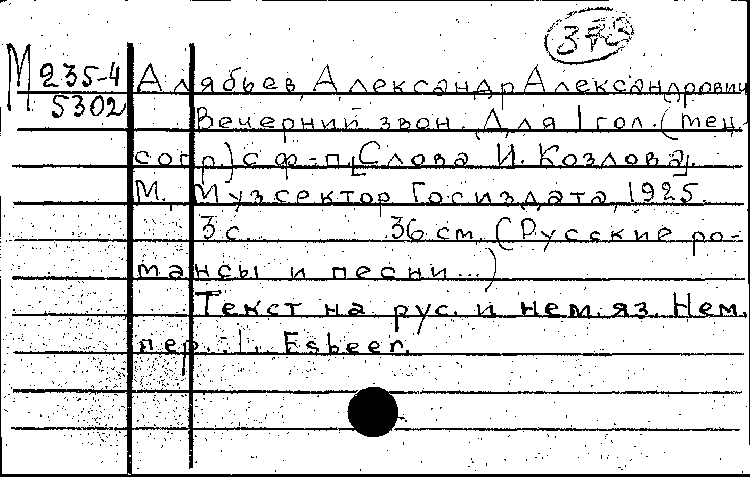 373
М 235-4
5302
Алябьев, Александр Александрович
Вечерний звон. Для 1 гол. (мец-
сопр) с ф=п. [Слова И. Козлова].
М., Музсектор Госиздата, 1925.
3 с. 36 см. (Русские ро-
мансы и песни...)
Текст на рус. и нем. яз. Нем.
пер.: L. Esbeer.